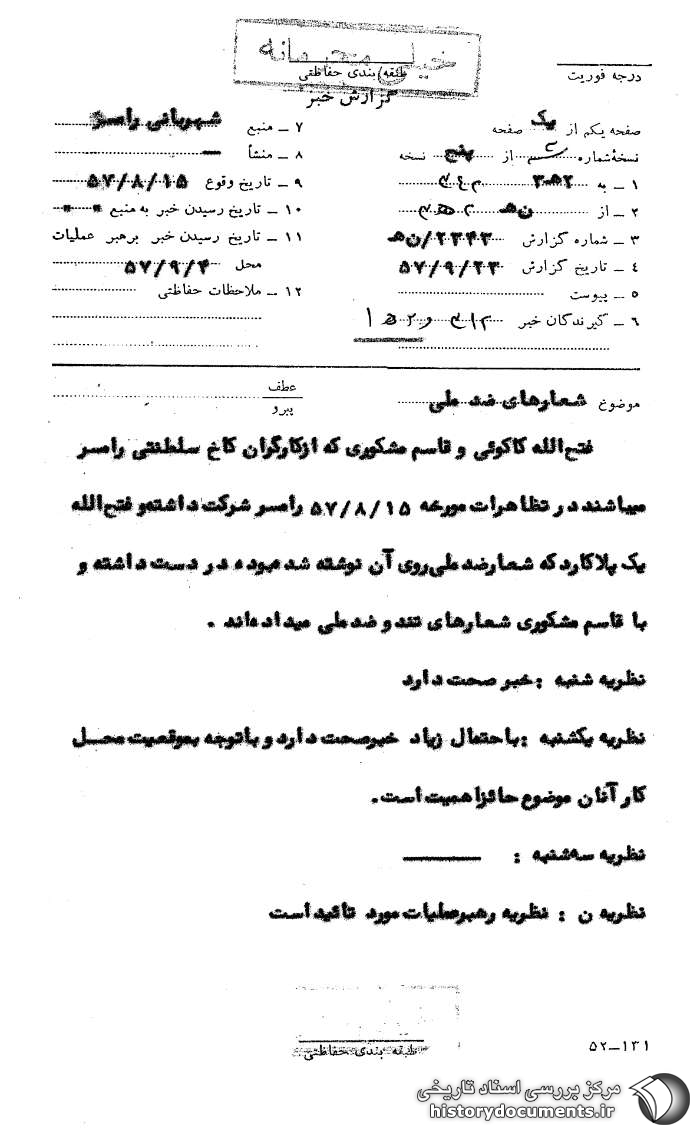 خیلی محرمانه
طبقه بندی حفاظتی
درجه فوریت
گزارش خبر
صفحه یکم از یک صفحه
نسخه شماره از پنج نسخه
۱ – به ۳ه۲
۲ – از ن ه
۳ – شماره گزارش ۲۳۴۳/ن ه
۴ – تاریخ گزارش ۵۷/۹/۲۳
۵ – پیوست
۶ – گیرندگان خبر
۷ – منبع شهربانی رامسر
۸ – منشأ —
۹ – تاریخ وقوع ۵۷/۸/۱۵
۱۰ – تاریخ رسیدن خبر به منبع
۱۱ – تاریخ رسیدن خبر برهبر عملیات
محل ۵۷/۹/۴
۱۲ – ملاحظات حفاظتی
موضوع شعارهای ضد ملی
عطف
پیرو
فتح‌الله کاکوئی و قاسم مشکوری که ازکارگران کاخ سلطنتی رامسر
میباشند در تظاهرات مورخه ۵۷/۸/۱۵ رامسر شرکت داشته‌و فتح‌الله
یک پلاکارد که شعارضد ملی‌روی آن نوشته شده‌بوده در دست داشته و
با قاسم مشکوری شعارهای تند و ضد ملی میداده‌اند .
نظریه شنبه : خبر صحت دارد
نظریه یکشنبه : با احتمال زیاد خبرصحت دارد و باتوجه بموقعیت محـل
کار آنان موضوع حائزاهمیت است.
نظریه سه‌شنبه : ———
نظریه ن : نظریه رهبرعملیات مورد تائید است
طبقه بندی حفاظتی
۵۲–۱۳۱
مرکز بررسی اسناد تاریخی
historydocuments.ir